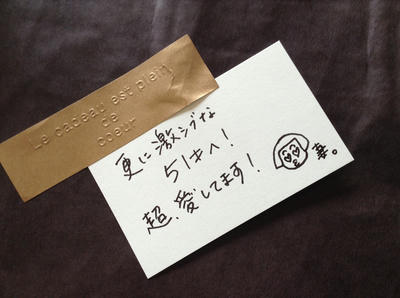 Le cadeau est plein
de
coeur
更に激シブな
51才へ!
超、愛してます!
妻。